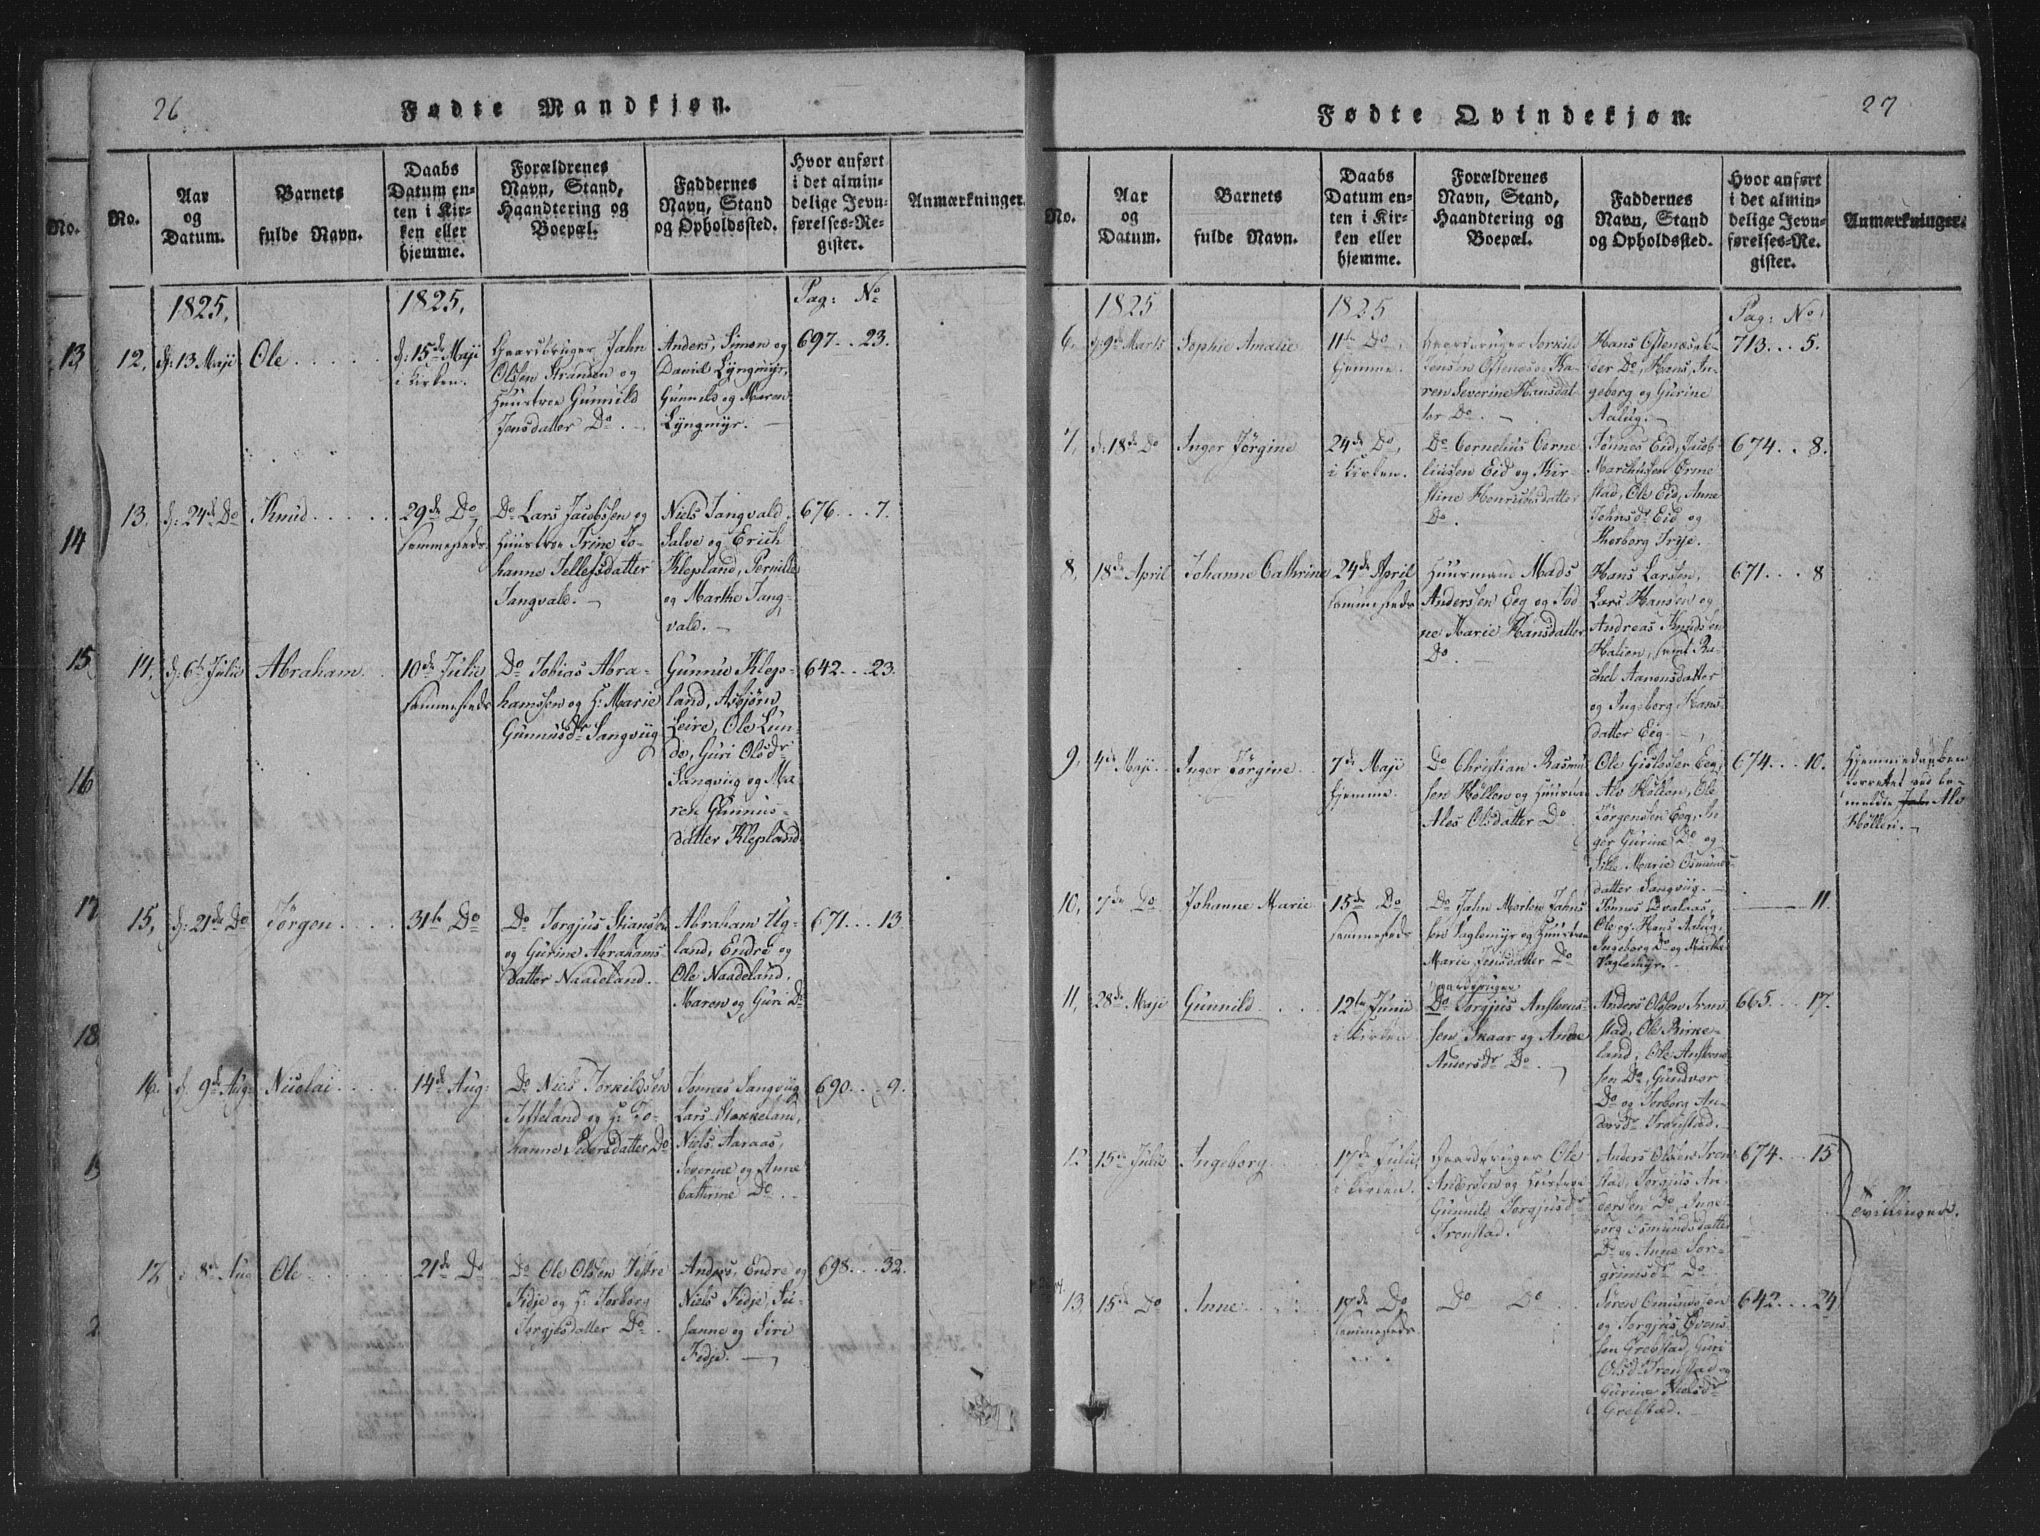 26
Fødte Mandkjøn.
No.
Aar
og
Datum.
Barnets
fulde Navn.
Daabs
Datum en-
ten i Kir-
ken eller
hjemme.
Forældrenes
Navn, Stand,
Haandtering og
Boepæl.
Faddernes
Navn, Stand
og Opholdssted.
Hvor anført
i det almin-
delige Jevn-
førelses-Re-
gister.
Anmærkninger.
1825,
1825,
Pag: No
12, d: 13 Maji
Ole
d: 15de Maji
i Kirken.
Gaardbruger Jahn
Olsen Stransen og
Huustroe Gunnild
Jensdatter Do.
Anders, Simon og
Daniel Lyngmyr,
Gunnild og Maren
Lyngmyr.
697. 23.
13, d: 24de Do
Knud
29de Do
sammesteds
Do Lars Jacobsen og
Huustroe Trine Jo-
hanne Tellefsdatter
Tangvald.
Niels Tangvald,
Salve og Erich
Klepland, Pernille
og Marthe Tang-
vald.
676. 7.
14, d: 6te Julii
Abraham
10de Julii
sammesteds
Do Tobias Abra-
hamsen og H: Marie
Gunnusdr Sangviig
Gunnu Klep-
land, Asbjørn
Leire, Ole Lun-
do, Guri Olsdr
Sangviig og Ma-
ren Gunnus-
datter Klepland
642. 23.
15, d: 21de Do
Jørgen
31te Do
Do Torgjus Stiansen
og Gurine Abrahams-
datter Naadeland.
Abraham Ug-
land, Endre og
Ole Naadeland.
Maren og Guri Do
671. 13.
16. d. 9de Aug
Nicolai
14de Aug:
Do Niels Torkildsen
Tofteland og H: Jo-
hanne Pedersdatter Do
Tønnes Sangviig
Lars Stokkeland,
Niels Aaraas,
Severine og Anne
Cathrine Do.
690. 9.
17, d 8de Aug
Ole
21de Do
Do Ole Olsen
Fidje og H: Torborg
Torgjesdatter Do.
Anders, Endre og
Niels Fedje, Su-
sanne og Siri
Fedje.
698. 32.
13
14
15
16
17
18
27
Fødte Qvindekjøn.
No.
Aar
og
Datum.
Barnets
fulde Navn.
Daabs
Datum en-
ten i Kir-
ken eller
hjemme.
Forældrenes
Navn, Stand,
Haandtering og
Boepæl.
Faddernes
Navn, Stand
og Opholdssted.
Hvor anført
i det almin-
delige Jevn-
førelses-Re-
gister.
Anmærkninger.
1825
1825
Pag: No
6, d: 9de Marts
Sophie Amalie
11te Do
hjemme.
Gaardbruger Torkild
Jensen Ostenes og Ka-
ren Severine Hansdat-
ter Do.
Hans Ostenes,
Do, Hans, In-
geborg og Gurine
Aalug.
713. 5.
7, d: 18de Do
Inger Jørgine
24de Do
i Kirken.
Do Cornelius Corne-
liusen Eid og Kir-
stine Henrichsdatter
Do.
Tønnes Eid, Jacob
Marchusen
stad, Ole Eid, Anne
Johnsdr Eid og
Thorborg Trye.
674. 8.
8, 18de April
Johanne Cathrine
24de April
sammesteds
Huusmand Mads
Andersen Eeg og
Marie Hansdatter
Do.
Hans Larsen,
Lars Hansen og
Andreas Knudsen
samt Ra-
chel Aanensdatter
og Ingeborg Hans-
datter Eeg.
671. 8
9, 4de Maji
Inger Jørgine
7de Maji
hjemme.
Do Christian Rasmu-
sen Høllen og Huustroe
Ales Olsdatter Do
Ole Gislesen Eeg,
Alv Høllen, Ole
Jørgensen Eeg, In-
ger Gurine Do og
Marie Osmunds-
datter Sangviig.
674. 10.
Hjemmedaaben
forrettet ved be-
meldte Alv
Høllen.
10, 7de Do
Johanne Marie
15de Do
sammesteds
Do Jahn Morten Jahn-
sen Vaglemyr og Huustroe
Marie Jensdatter Do
Tønnes Qvalaas
Ole og Hans Aalug,
Ingeborg Do og Marthe
Vaglemyr.
11.
11, 28de Maji
Gunnild
12te Junii
i Kirken
Gaardbruger
Do Torgjus Anstens-
sen Skaar og Anne
Andersdr Do.
Anders Olsen Tron-
stad, Ole Birke-
land, Ole Anstens-
sen Do, Gundvor
Do og Torborg An-
dersdr Tronstad.
665. 17.
12 15de Julii
Ingeborg
17de Julii
i Kirken.
Gaardbruger Ole
Andersen og Huustroe
Gunnild Torgjusdr
Tronstad.
Anders Olsen Tron-
stad, Torgjus An-
dersen Do, Inge-
borg Osmundsdatter
Do og Anne Tor-
grimsdr Do
674. 15
Tvillinger.
13, 15de Do
Anne
17de Do
sammesteds
Do Do
Søren Omundsen
og Torgjus Evens-
sen Grefstad, Guri
Olsdr Tronstad og
Gurine Nielsdr
Grefstad.
642. 24